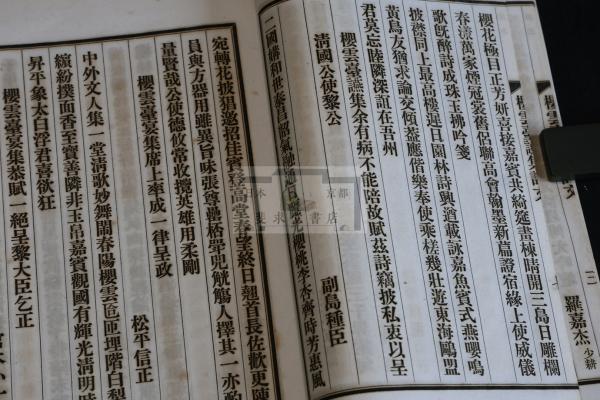 羅嘉杰 少耕
櫻花極目正芳妍喜接嘉賓共綺筵畫棟晴開三島日雕欄
春漾萬家煙冠裳舊侶聯高會翰墨新篇證宿緣上使威儀
歌既醉詩成珠玉拂吟箋
披襟同上最高樓遲日園林詩興遒載詠嘉魚賓式燕嚶鳴
黃鳥友猶求論交傾蓋應偕樂奉使乘槎幾壯遊東海鷗盟
君莫忘睦隣深誼在吾州
櫻雲臺讌集余有病不能陪故賦茲詩竊披私衷以呈
清國公使黎公
副島種臣
二國講和世泰昌韶氣融通光櫻桃李杏齊時芳惠風
宛轉花披猖邀招佳賓登高堂春望終日翹首長佐歡更陳
員與方器用雖異旨味張尊罍格學兕觥觴人擇其一亦酌
量賢哉公使德攸常收攬英雄用柔剛
櫻雲臺宴集席上率成一律呈政
松平信正
中外文人集一堂清歌妙舞鬧春陽櫻雲匝埋階白梨
繽紛撲面香至寶善隣非玉帛嘉賓觀國有輝光清明時
昇平象太白浮君喜欲狂
櫻雲臺宴集恭賦一絕呈黎大臣乞正
京都
求堂書店